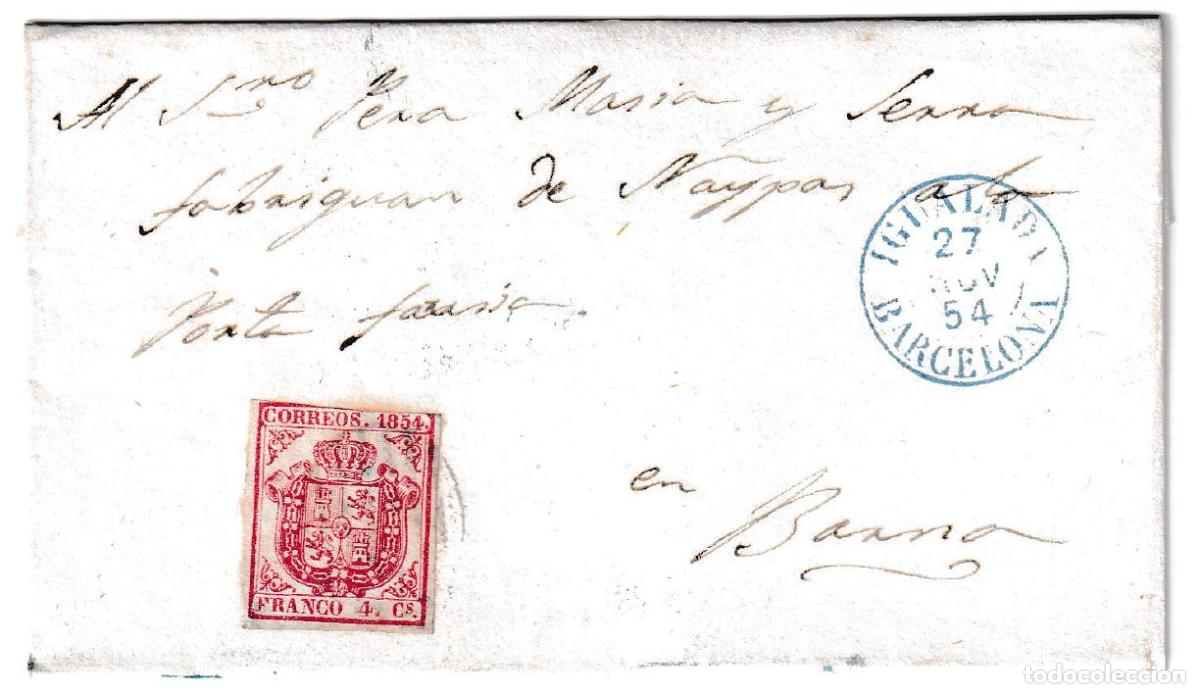 Al Sno Pera Masia y Serra
fabriguan de Naypas a la
Porta farrisa
IGUALADA
27
NOV
54
BARCELONA
CORREOS. 1854.
FRANCO 4. Cs.
en
Barna
todocoleccion